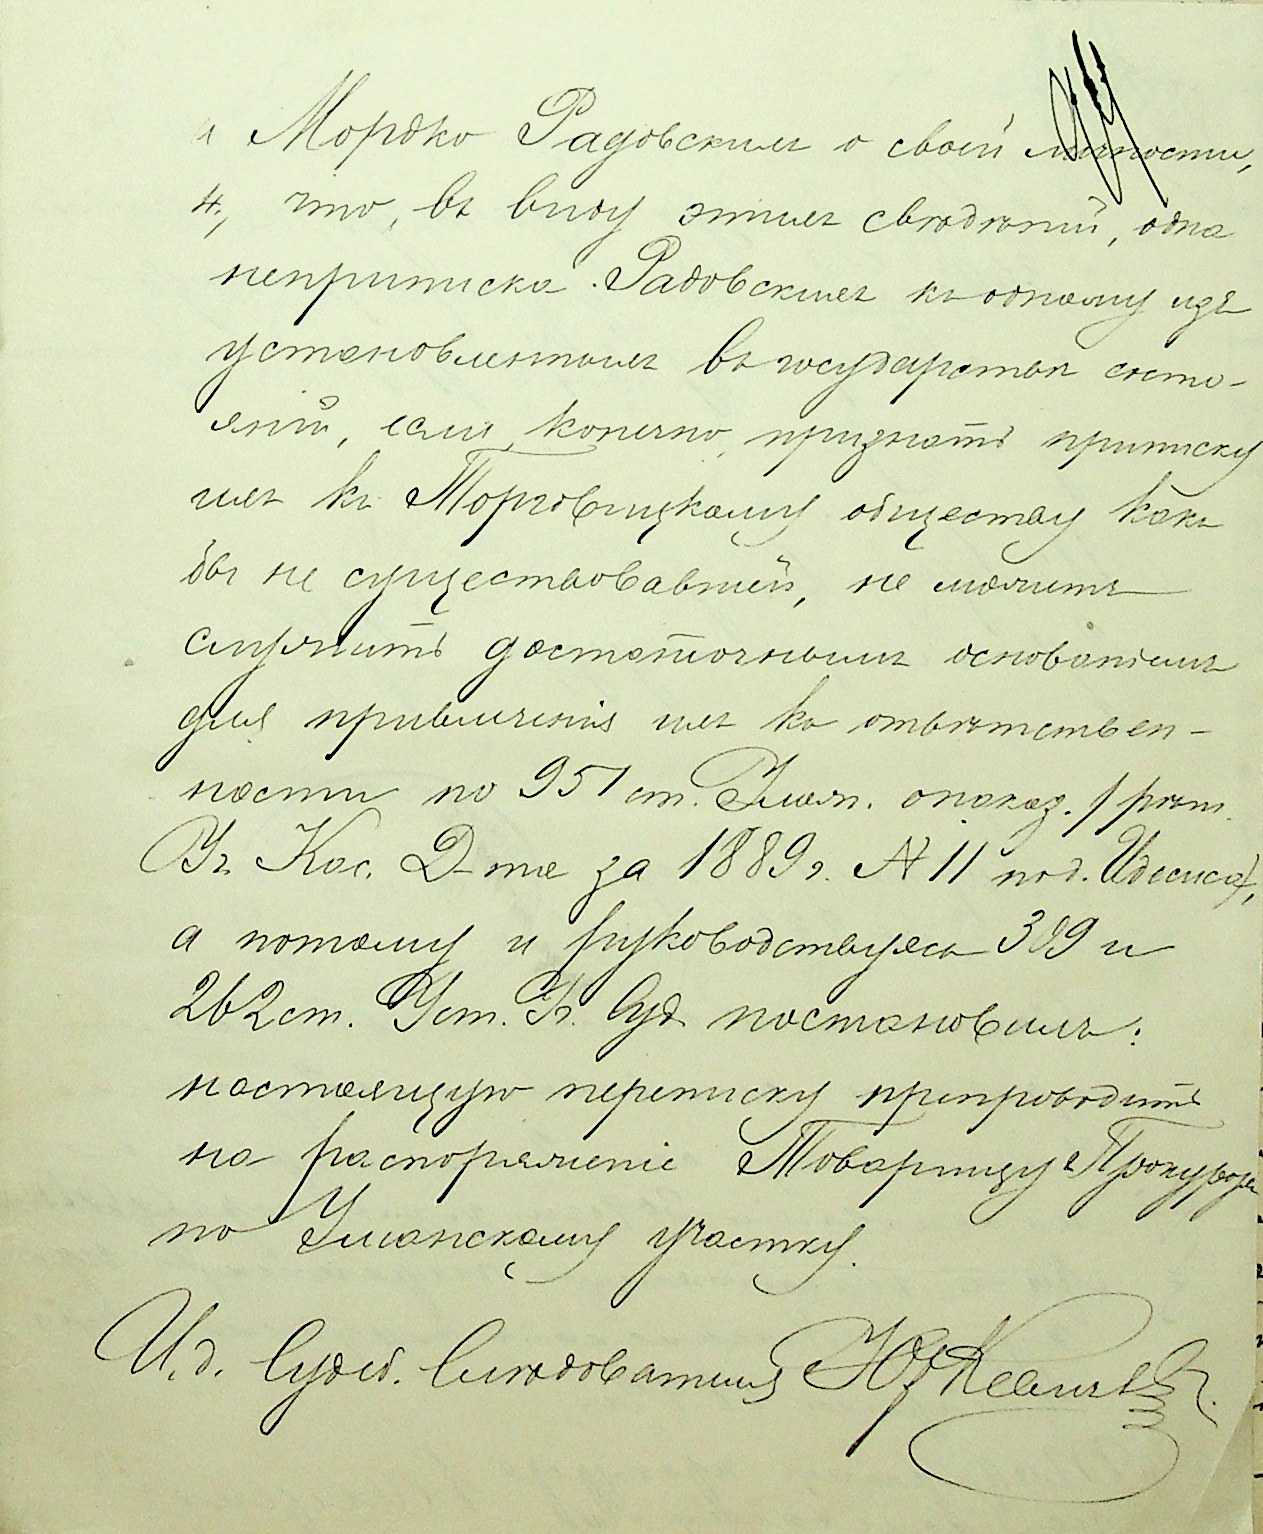 и Мордко Радовскимъ о своей личности,
4, что, въ виду этихъ свѣдѣній, одна
неприписка Радовскихъ къ одному изъ
установленныхъ въ государствѣ состо-
яній, если, конечно, признать приписку
ихъ къ Торговицкому обществу какъ
бы не существовавшей, не можетъ
служить достаточнымъ основаніемъ
для привлеченія ихъ къ отвѣтствен-
ности по 951 ст. Улож. о наказ. /рѣш.
Уг. Кас. Д-та за 1889 г. № 11 по д.
а потому и руководствуясь 309 и
262 ст. Уст. Уг. Суд. постановилъ:
настоящую переписку препроводить
на распоряженіе Товарищу Прокурора
по Уманскому участку.
И. д. Судеб. Слѣдователя